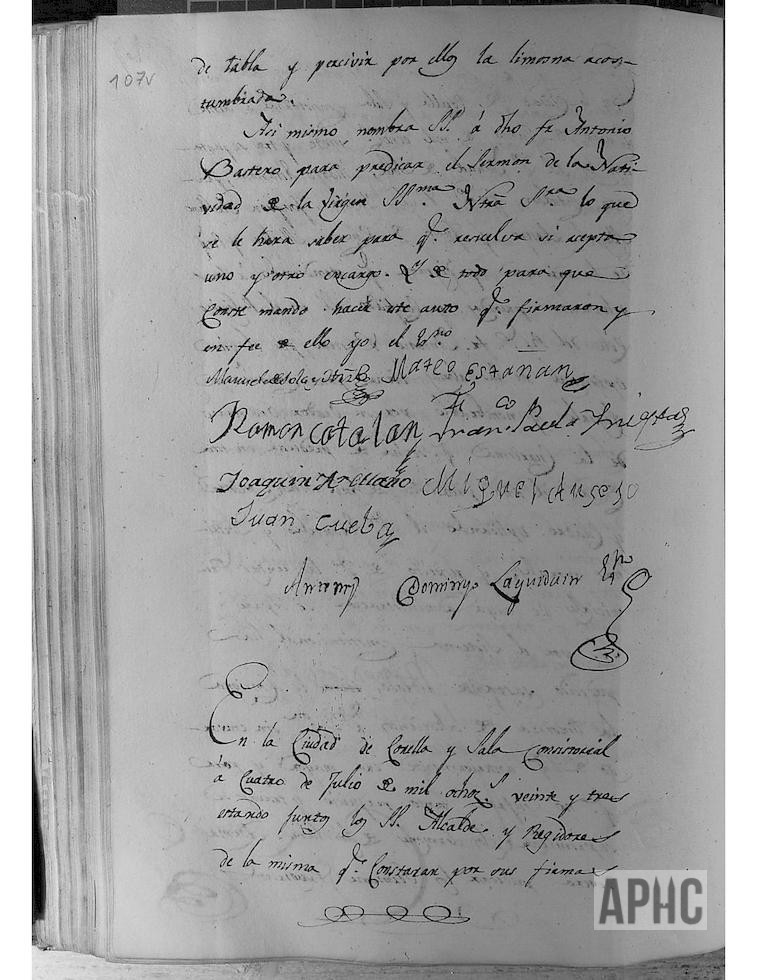 107v
de tabla y percivir por ellos la limosna acos-
tumbrada.
Asi mismo nombra SS.ª á dho fr Antonio
Bartero para predicar el Sermon de la Nati-
vidad de la Virgen SS.ma Ntra S.ra lo que
se le hara saber para q.e resuelva si acepta
uno y otro encargo. Y de todo para que
Conste mando hacer este auto q.e firmaron y
en fee de ello yo el Es.no
Mateo Estañan
Ramon Catalan Fran.co Paula
Joaquin Arellano Miguel Anseso
Juan Cuelta
Ante mi Domingo Laquidain Es.no
En la Ciudad de Corella y Sala Consistorial
á Cuatro de Julio de mil ochoz.s veinte y tres
estando juntos los SS. Alcalde y Regidores
de la misma q.e Constaran por sus firmas
APHC